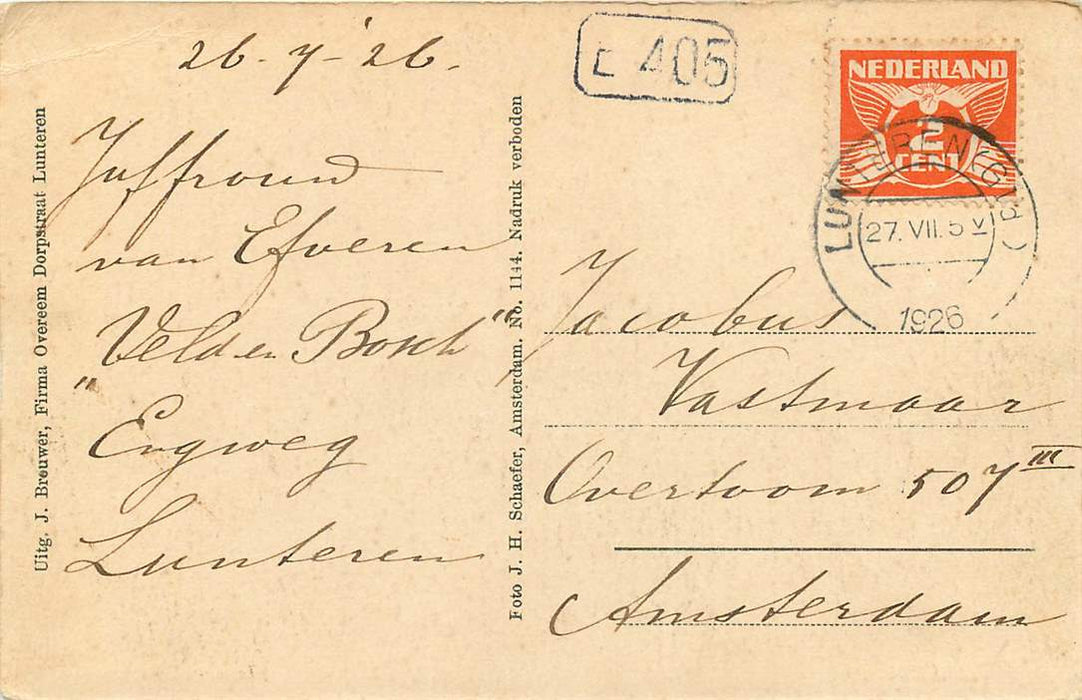 26-7-'26.
E 405
NEDERLAND
2
CENT
LUNTEREN (GLD)
27. VII. 5 V
1926
Juffrouw
van Efveren
"Veld en Bosch"
Engweg
Lunteren
Uitg. J. Brouwer, Firma Overeem Dorpstraat Lunteren
Foto J. H. Schaefer, Amsterdam. No. 1144. Nadruk verboden
Jacobus
Vastmaar
Overtoom 507 III
Amsterdam